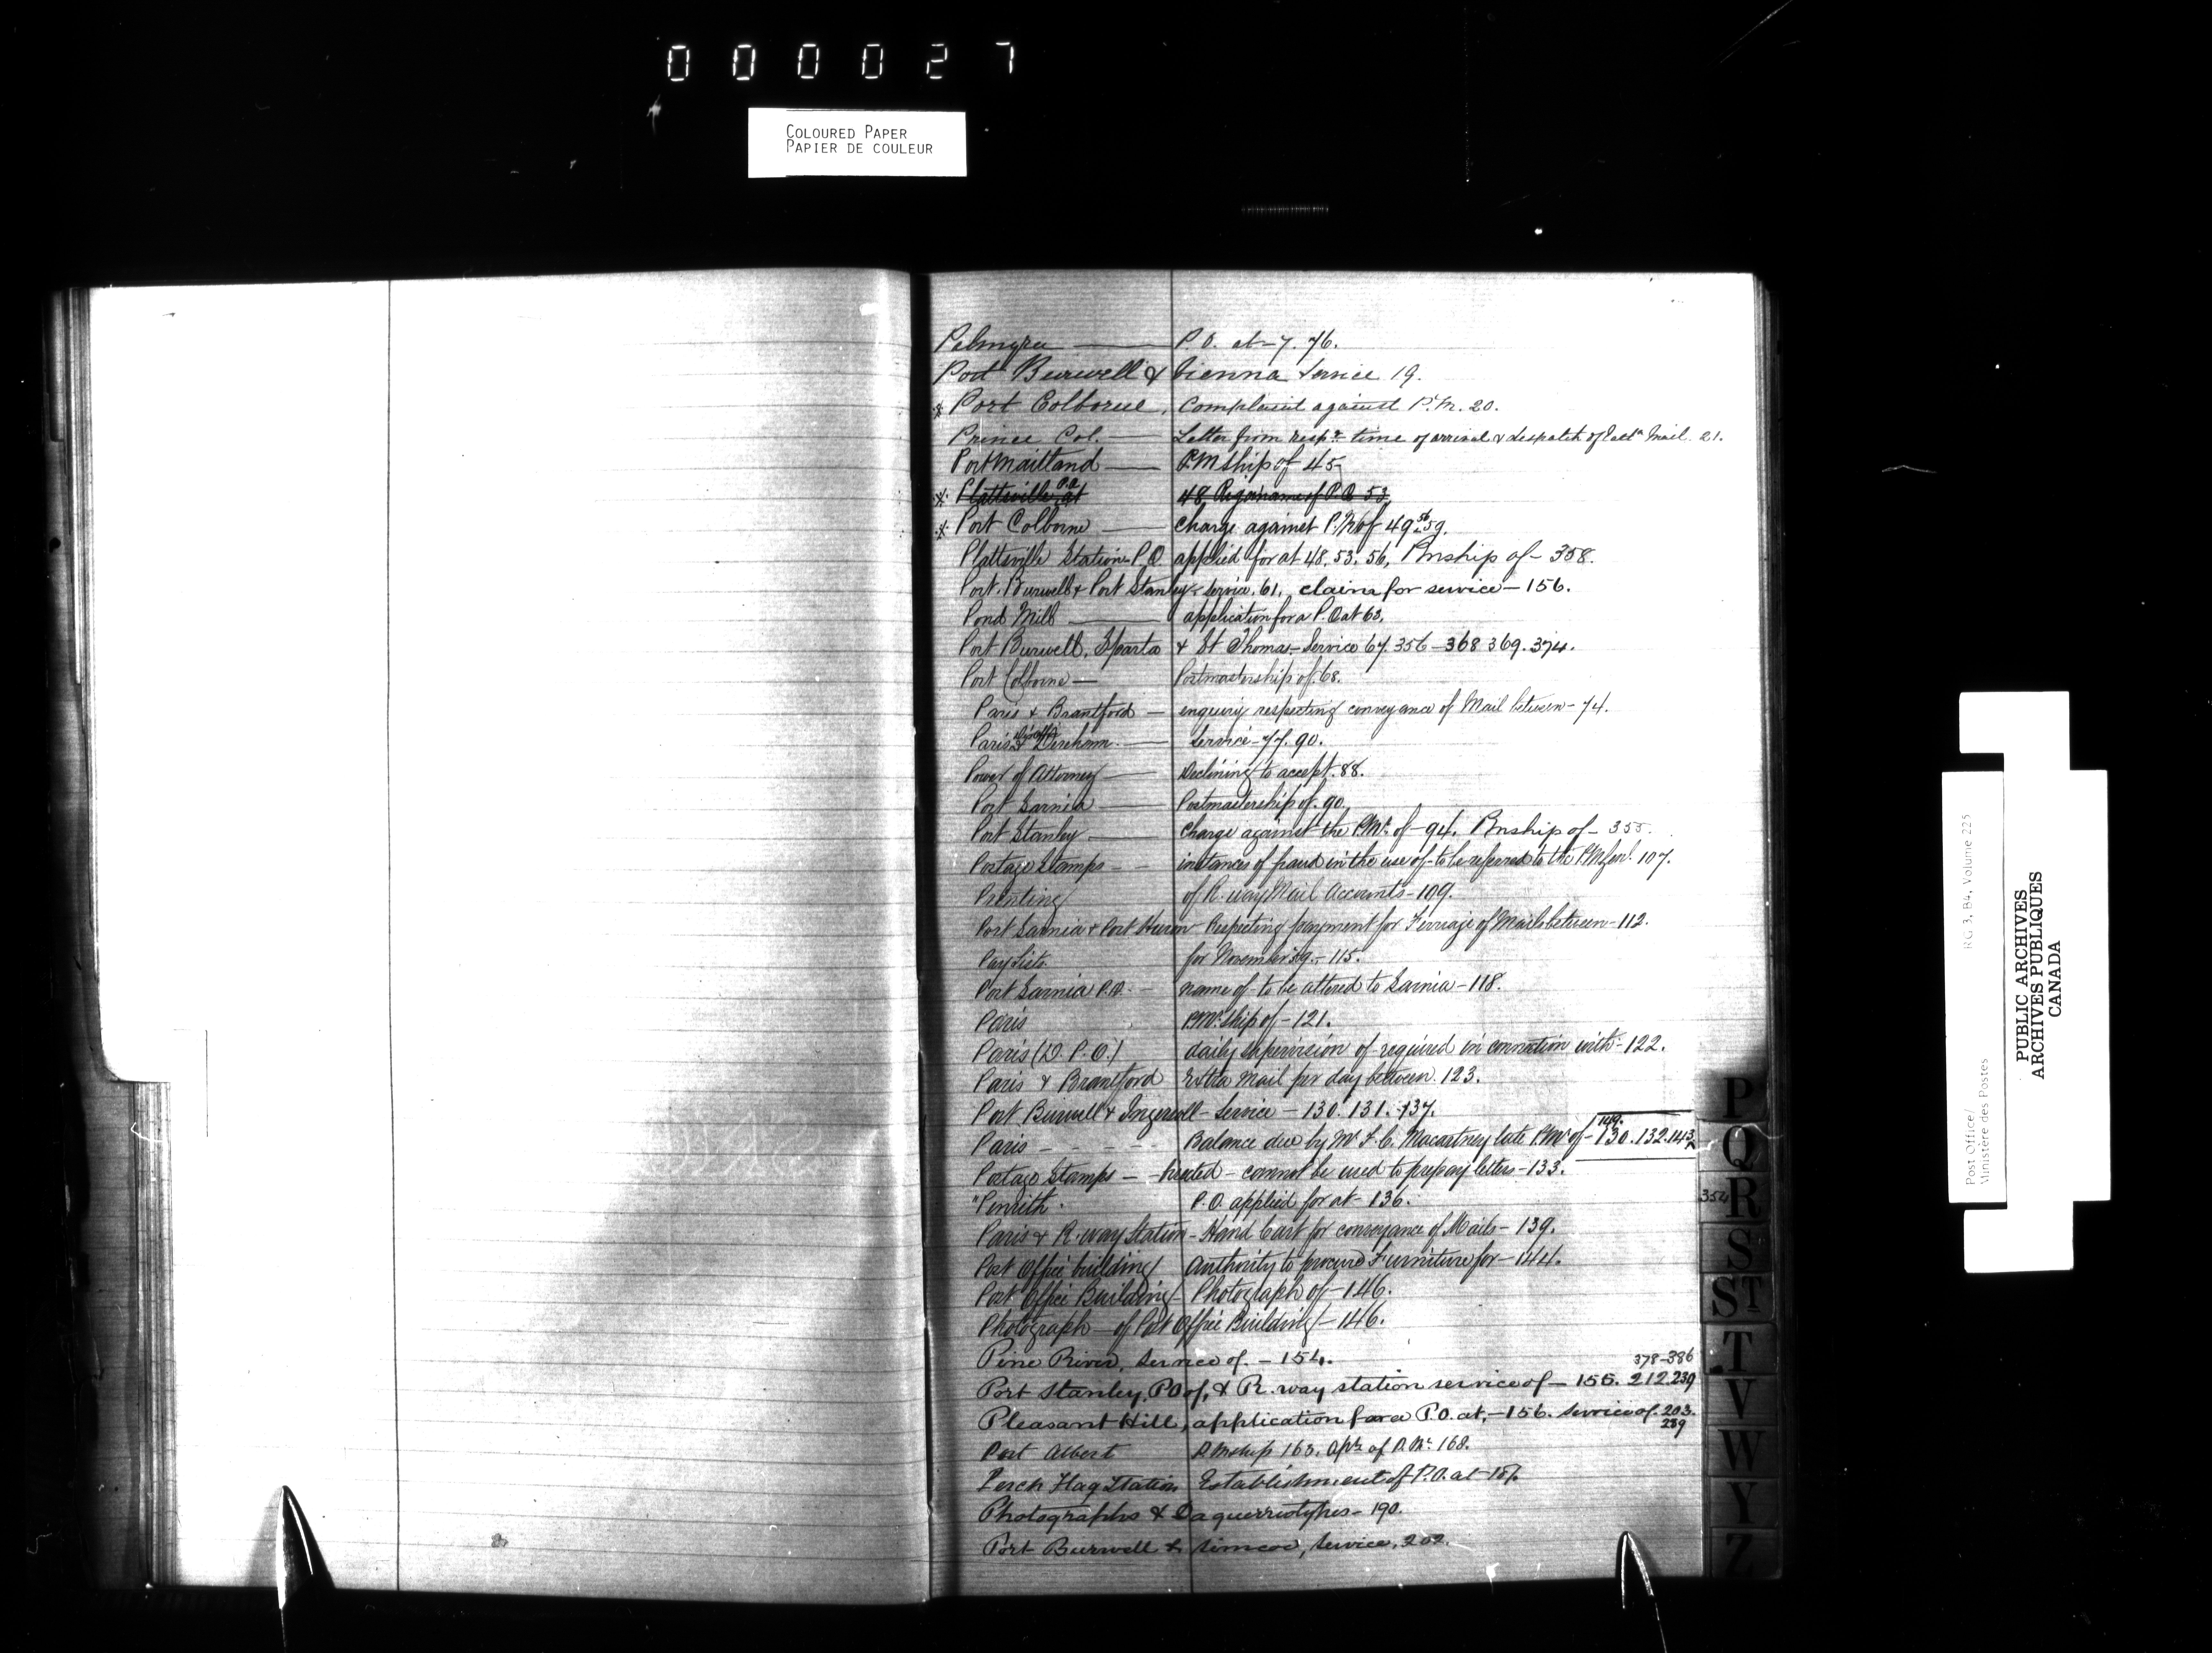 000027
COLOURED PAPER
PAPIER DE COULEUR
Palmyra — P.O. at - 7. 76.
Port Burwell & Vienna Service 19.
* Port Colborne, Complaint against P.M. 20.
Prince Col. — Letter from resp.g time of arrival & despatch of Mail. 21.
Port Maitland — P.M ship of 45
* Plattsville P.O. at 48 name of P.O. 53
* Port Colborne — Charge against P.M of 49. 56 59.
Plattsville Station P.O applied for at 48. 53. 56, Pmship of - 358.
Port Burwell & Port Stanley - Service. 61. claim for service - 156.
Pond Mills — application for a P.O at 63.
Port Burwell, Sparta & St Thomas - Service 67. 356 - 368 369. 374.
Port Colborne — Postmastership of. 68.
Paris & Brantford — enquiry respecting conveyance of Mail between - 74.
Paris & Dereham — Service - 77. 90.
Power of Attorney — Declining to accept. 88.
Port Sarnia — Postmastership of. 90
Port Stanley — Charge against the P.Mr. of - 94. Pmship of - 355.
Postage Stamps — instances of fraud in the use of - to be referred to the P.M.Genl. 107.
Printing of R. way Mail Accounts - 109.
Port Sarnia & Port Huron - Respecting payment for Ferriage of Mails between - 112.
Pay Lists for November 59. - 115.
Port Sarnia P.O. - name of - to be altered to Sarnia - 118.
Paris P.Mr. ship of - 121.
Paris (D.P.O.) daily supervision of required in connection with - 122.
Paris & Brantford Extra Mail per day between. 123.
Port Burwell & Ingersoll - Service - 130. 131. 137.
Paris - Balance due by Mr. F. C. Macartney late P.Mr of - 130. 132. 143
Postage Stamps — - cannot be used to prepay letters - 133.
"Penrith. P.O. applied for at - 136. 354
Paris & R. way Station - Hand Cart for conveyance of Mails - 139.
Post Office building Authority to procure Furniture for - 144.
Post Office Building - Photograph of - 146.
Photograph - of Post Office Building - 146.
Pine River, Service of. - 154.
378-386
Port Stanley, P.O of, & R. way station service of - 155. 212. 239
Pleasant Hill, application for a P.O. at, - 156. Service of. 203.
289
Port Albert P.Mship 163. Apt. of P.Mr. 168.
Perch Flag Station Establishment of P.O. at - 187.
Photographs & Daguerreotypes - 190.
Port Burwell & Simcoe, Service, 202.
P
Q
R
S
ST
T
V
W
Y
Z
Post Office/ RG 3, B4, Volume 225
Ministère des Postes
PUBLIC ARCHIVES
ARCHIVES PUBLIQUES
CANADA